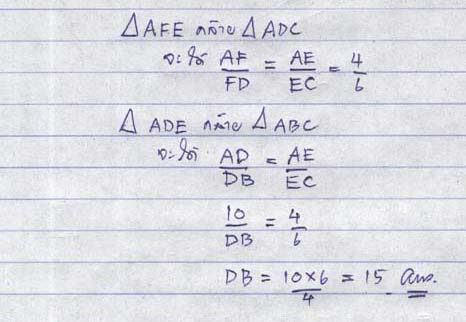 △AFE คล้าย △ADC
จะได้ AF/FD = AE/EC = 4/6
△ ADE คล้าย △ABC
จะได้ AD/DB = AE/EC
10/DB = 4/6
DB = 10×6/4 = 15 Ans.